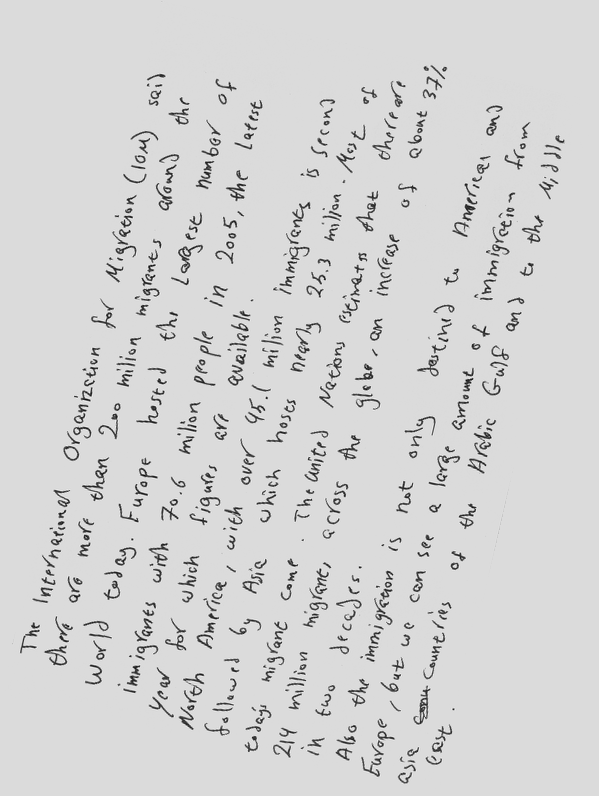 The International Organization for Migration (IOM) said
there are more than 200 milion migrants around the
World today. Europe hosted the Largest number of
immigrants with 70.6 million people in 2005, the Latest
year for which figures are available.
North America, with over 45.1 milion immigrants is second
followed by Asia which hosts nearly 25.3 milion. Most of
todays migrant come. The united Nations estimates that thereare
214 million migrant, across the globe, an increase of about 37%
in two decades.
Also the immigration is not only destined to Americas and
Europe, but we can see a large amount of immigration from
asia countries of the Arabic Gulf and to the Middle
East.